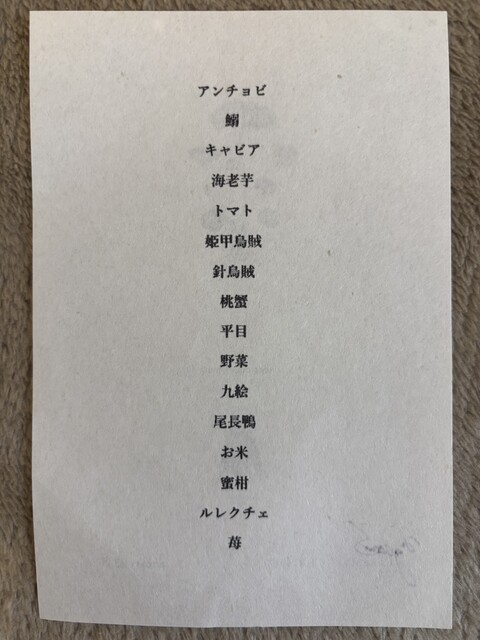 アンチョビ
鰯
キャビア
海老芋
トマト
姫甲烏賊
針烏賊
桃蟹
平目
野菜
九絵
尾長鴨
お米
蜜柑
ルレクチェ
苺